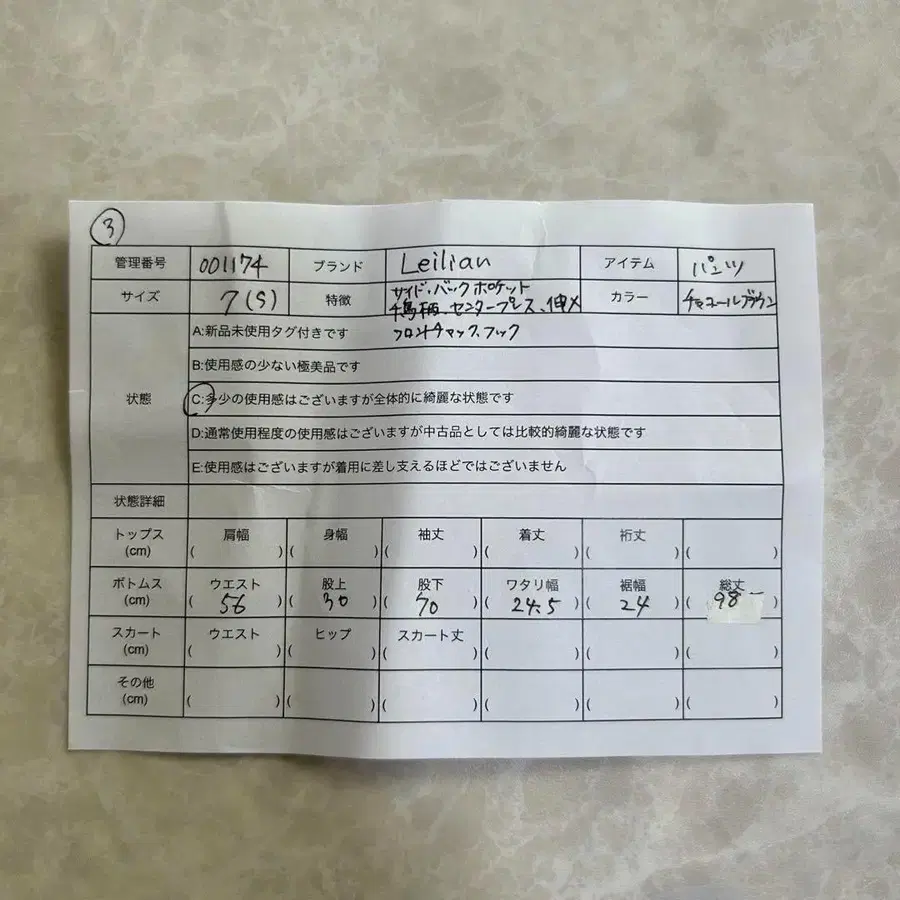 ③
管理番号 001174 ブランド Leilian アイテム パンツ
サイズ 7(S) 特徴 サイド、バックポケット
千鳥柄、センタープレス、伸メ
フロントチャック、フック
カラー チャコールブラウン
状態
A:新品未使用タグ付きです
B:使用感の少ない極美品です
C:多少の使用感はございますが全体的に綺麗な状態です
D:通常使用程度の使用感はございますが中古品としては比較的綺麗な状態です
E:使用感はございますが着用に差し支えるほどではございません
状態詳細
トップス 肩幅 身幅 袖丈 着丈 裄丈
(cm) ( ) ( ) ( ) ( ) ( ) ( )
ボトムス ウエスト 股上 股下 ワタリ幅 裾幅 総丈
(cm) ( 56 ) ( 30 ) ( 70 ) ( 24.5 ) ( 24 ) ( 98 )
スカート ウエスト ヒップ スカート丈
(cm) ( ) ( ) ( ) ( ) ( ) ( )
その他
(cm) ( ) ( ) ( ) ( ) ( ) ( )